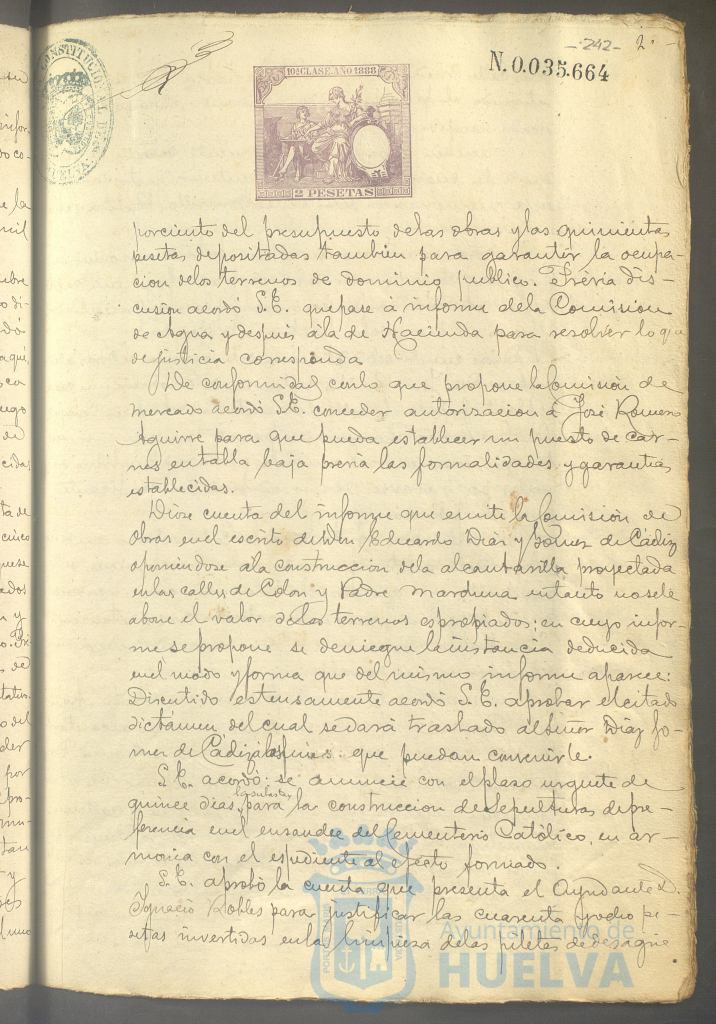 -242-
2.
N.0.035.664
CONSTITUCIONAL DE
10ª CLASE. AÑO 1888
2 PESETAS
porciento del presupuesto delas obras y las quinientas
pesetas depositadas tambien para garantir la ocupa-
cion delos terrenos de dominio publico. Prévia dis-
cusion acordó S.E. que pase á informe dela Comision
de Agua y despues ála de Hacienda para resolver lo que
de justicia corresponda
De conformidad conlo que propone la Comisión de
mercado acordó S.E. conceder autorizacion á José Romero
Aguirre para que pueda establecer un puesto de car-
nes en tabla baja previa las formalidades y garantias
establecidas.
Dióse cuenta del informe que emite la Comisión de
Obras en el escrito de Don Eduardo Diáz y Gomez de Cádiz
oponiendose ála construccion dela alcantarilla proyectada
en las calles de Colon y Padre Marchena entanto nosele
abone el valor de los terrenos espropiados; en cuyo infor-
me se propone se deniegue la instancia deducida
en el modo y forma que del mismo informe aparece:
Discutido estensamente acordó S.E. aprobar el citado
dictámen del cual se dará traslado al Señor Diáz Go-
mez de Cádiz á los fines que puedan convenirle.
S.E. acordó: se anuncie con el plazo urgente de
quince dias la subasta para la construccion de Sepulturas de pre-
ferencia en el ensanche del Cementerio Católico, en ar-
monica con el espediente al efecto formado.
S.E. aprobó la cuenta que presenta el Ayudante D.
Ignacio Robles para justificar las cuarenta y ocho pe-
setas invertidas en la limpieza delas piletas de desagüe
Ayuntamiento de
HUELVA